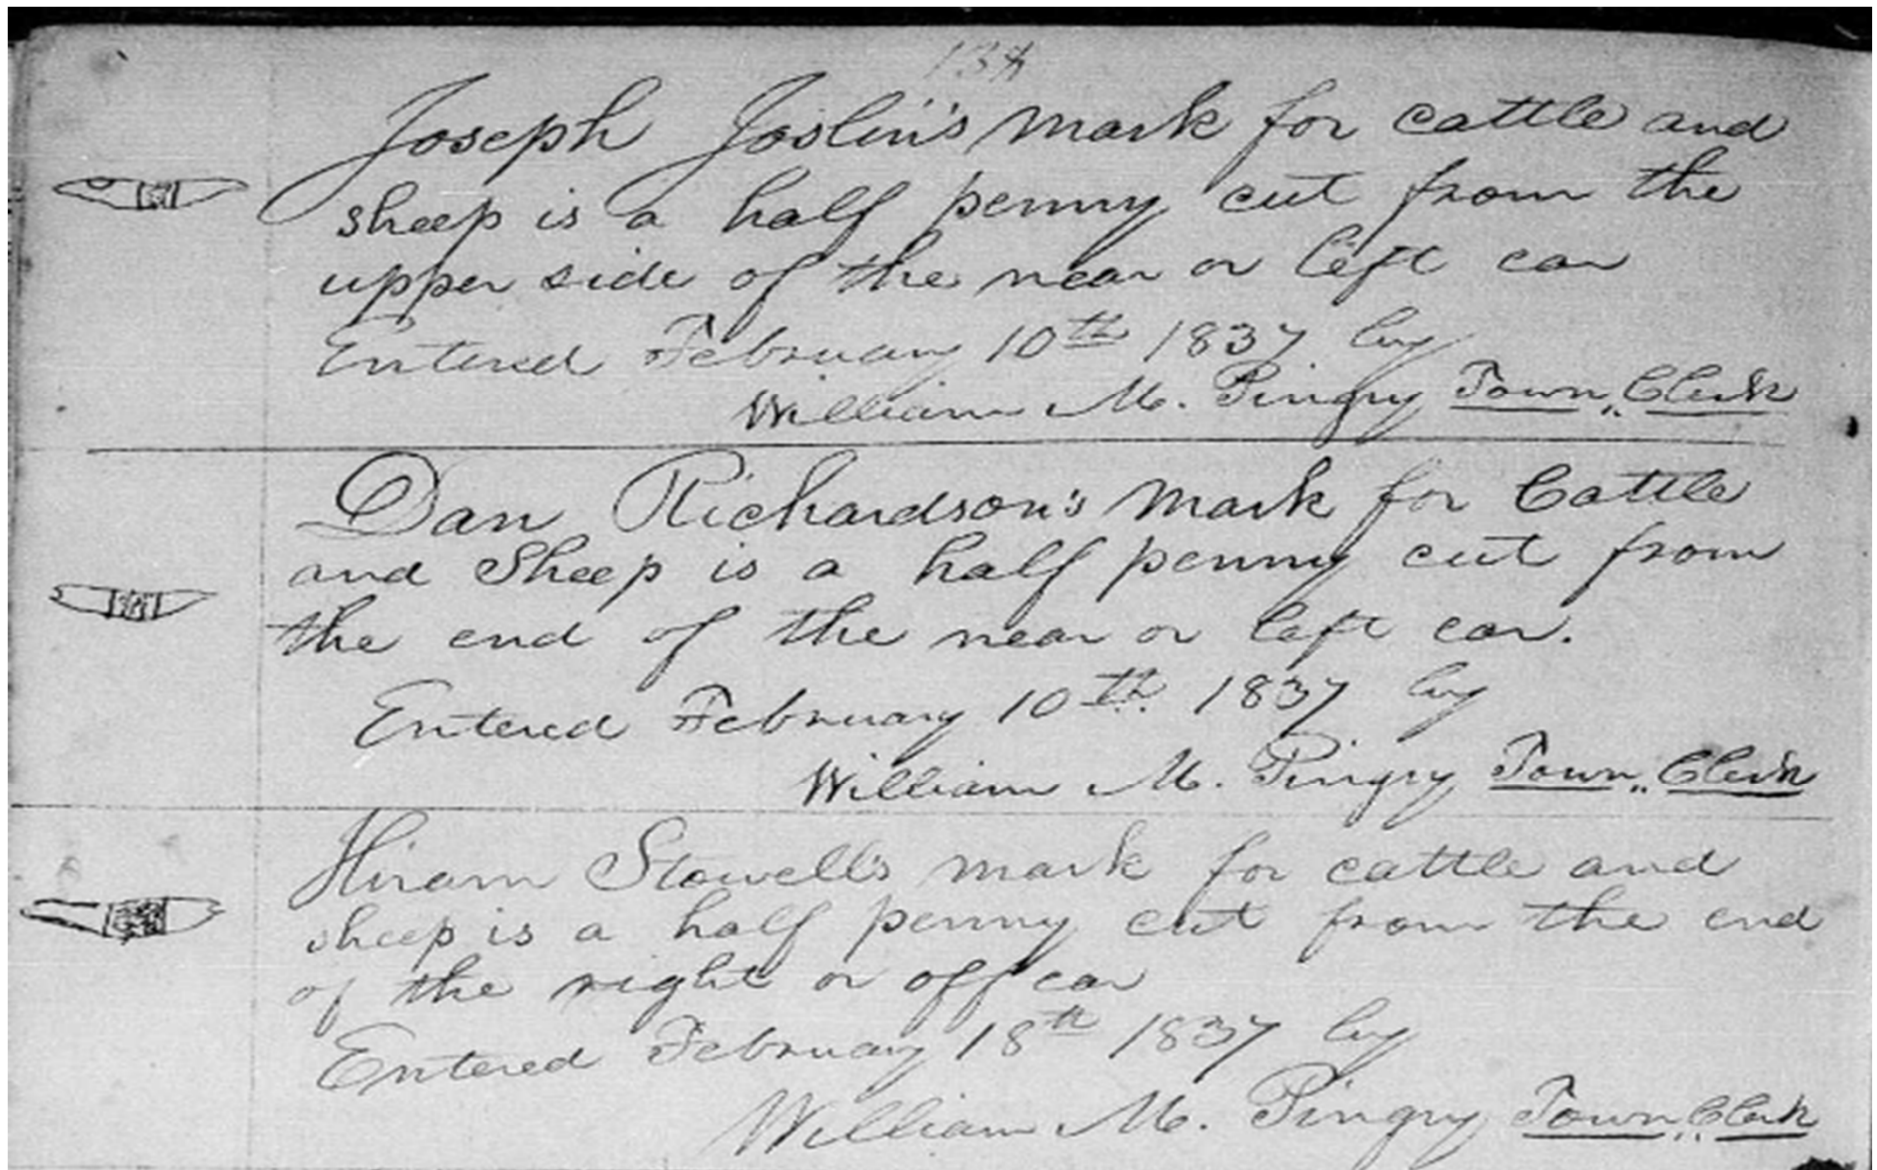 Joseph Joslin's mark for cattle and
sheep is a half penny cut from the
upper side of the near or left ear
Entered February 10th 1837 by
William M. Pingry Town Clerk
Dan Richardson's mark for Cattle
and Sheep is a half penny cut from
the end of the near or left ear.
Entered February 10th 1837 by
William M. Pingry Town Clerk
Hiram Stowell's mark for cattle and
sheep is a half penny cut from the end
of the right or off ear
Entered February 18th 1837 by
William M. Pingry Town Clerk